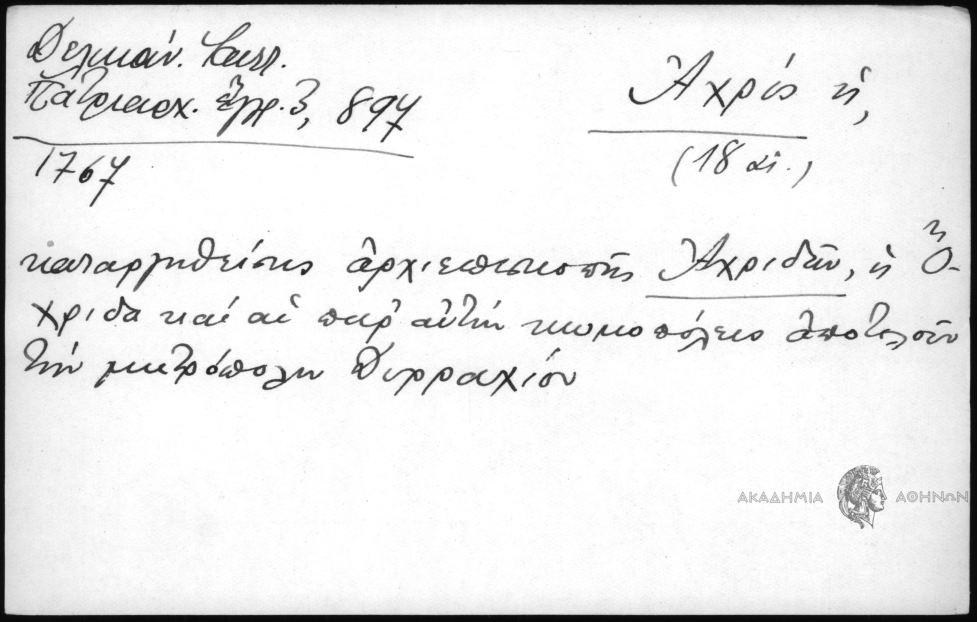 Δελικάν. Καλλ.
Πατριαρχ. ἔγγρ. 3, 897
1767
Ἀχρίς ἡ,
(18 αἰ.)
καταργηθείσης ἀρχιεπισκοπῆς Ἀχριδῶν, ἡ Ὄ-
χριδα καί αἱ παρ' αὐτήν κωμοπόλεις ἀποτελοῦν
τήν μητρόπολιν Δυρραχίου
ΑΚΑΔΗΜΙΑ ΑΘΗΝΩΝ